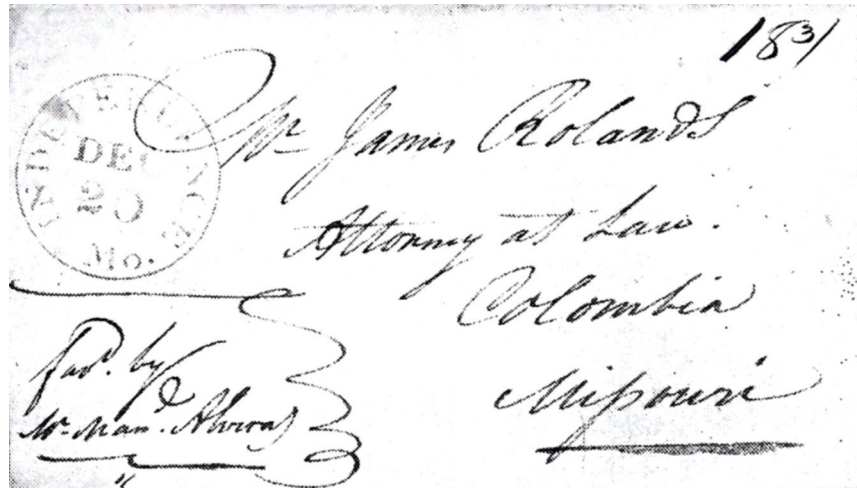 1831
INDEPENDENCE. Mo.
DEC
20
Mr James Rolands
Attorney at Law.
Colombia
Missouri
favd. by
Mr. Manl. Alvrad